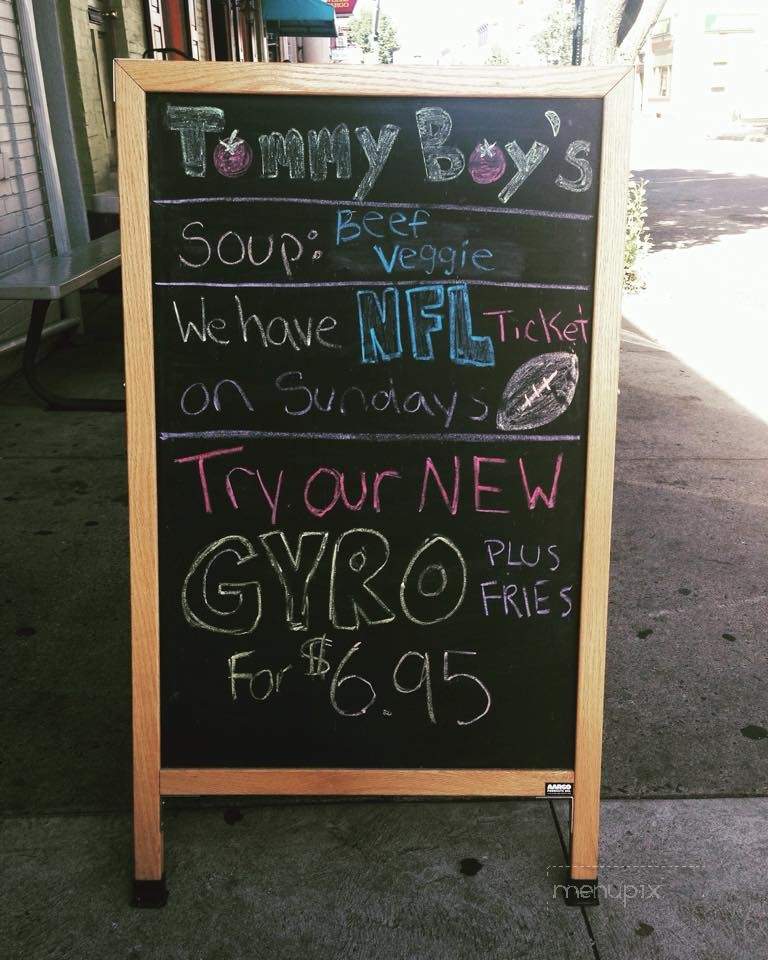 Tommy Boy's
Soup: Beef
Veggie
We have NFL Ticket
on Sundays
Try our NEW
GYRO PLUS
FRIES
For $6.95
AARCO
menupix